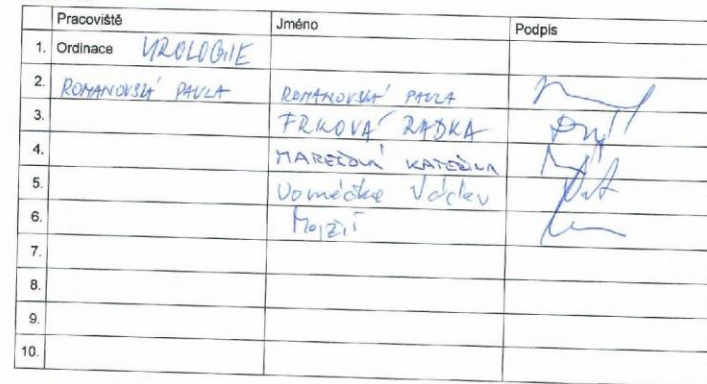 Pracoviště Jméno Podpis
1. Ordinace UROLOGIE
2. ROMANOVSKÁ PAVLA ROMANOVSKÁ PAVLA
3. FRKOVÁ RADKA
4. KATEŘINA
5. Václav
6.
7.
8.
9.
10.